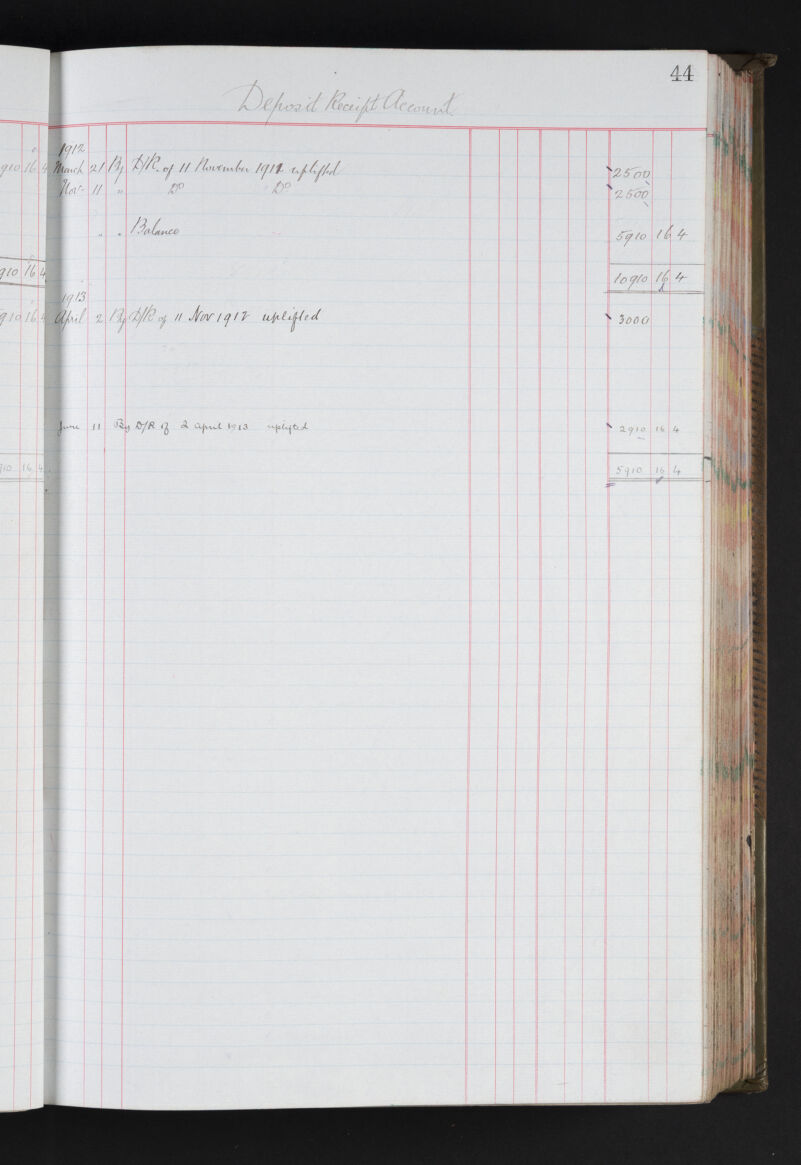 44
Deposit Receipt Account
1912
910 16 4 March 21 By D/R. of 11 November 1911 uplifted 2500
Nov- 11 " Do Do 2500
" " Balance 5910 16 4
910 16 4 10910 16 4
1913
910 16 4 April 2 By D/R of 11 Nov 1912 uplifted 3000
June 11 By D/R of 2 April 1913 uplifted 2910 16 4
910 16 4 5910 16 4